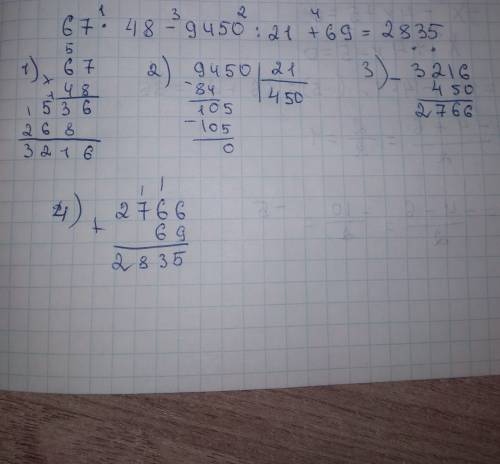 1 3 2 4
67 · 48 - 9450 : 21 + 69 = 2835
1) 5
67
× 48
1536
268
3216
2) 9450 | 21
- 84 450
105
- 105
0
3) - 3216
450
2766
4) 1 1
+ 2766
69
2835